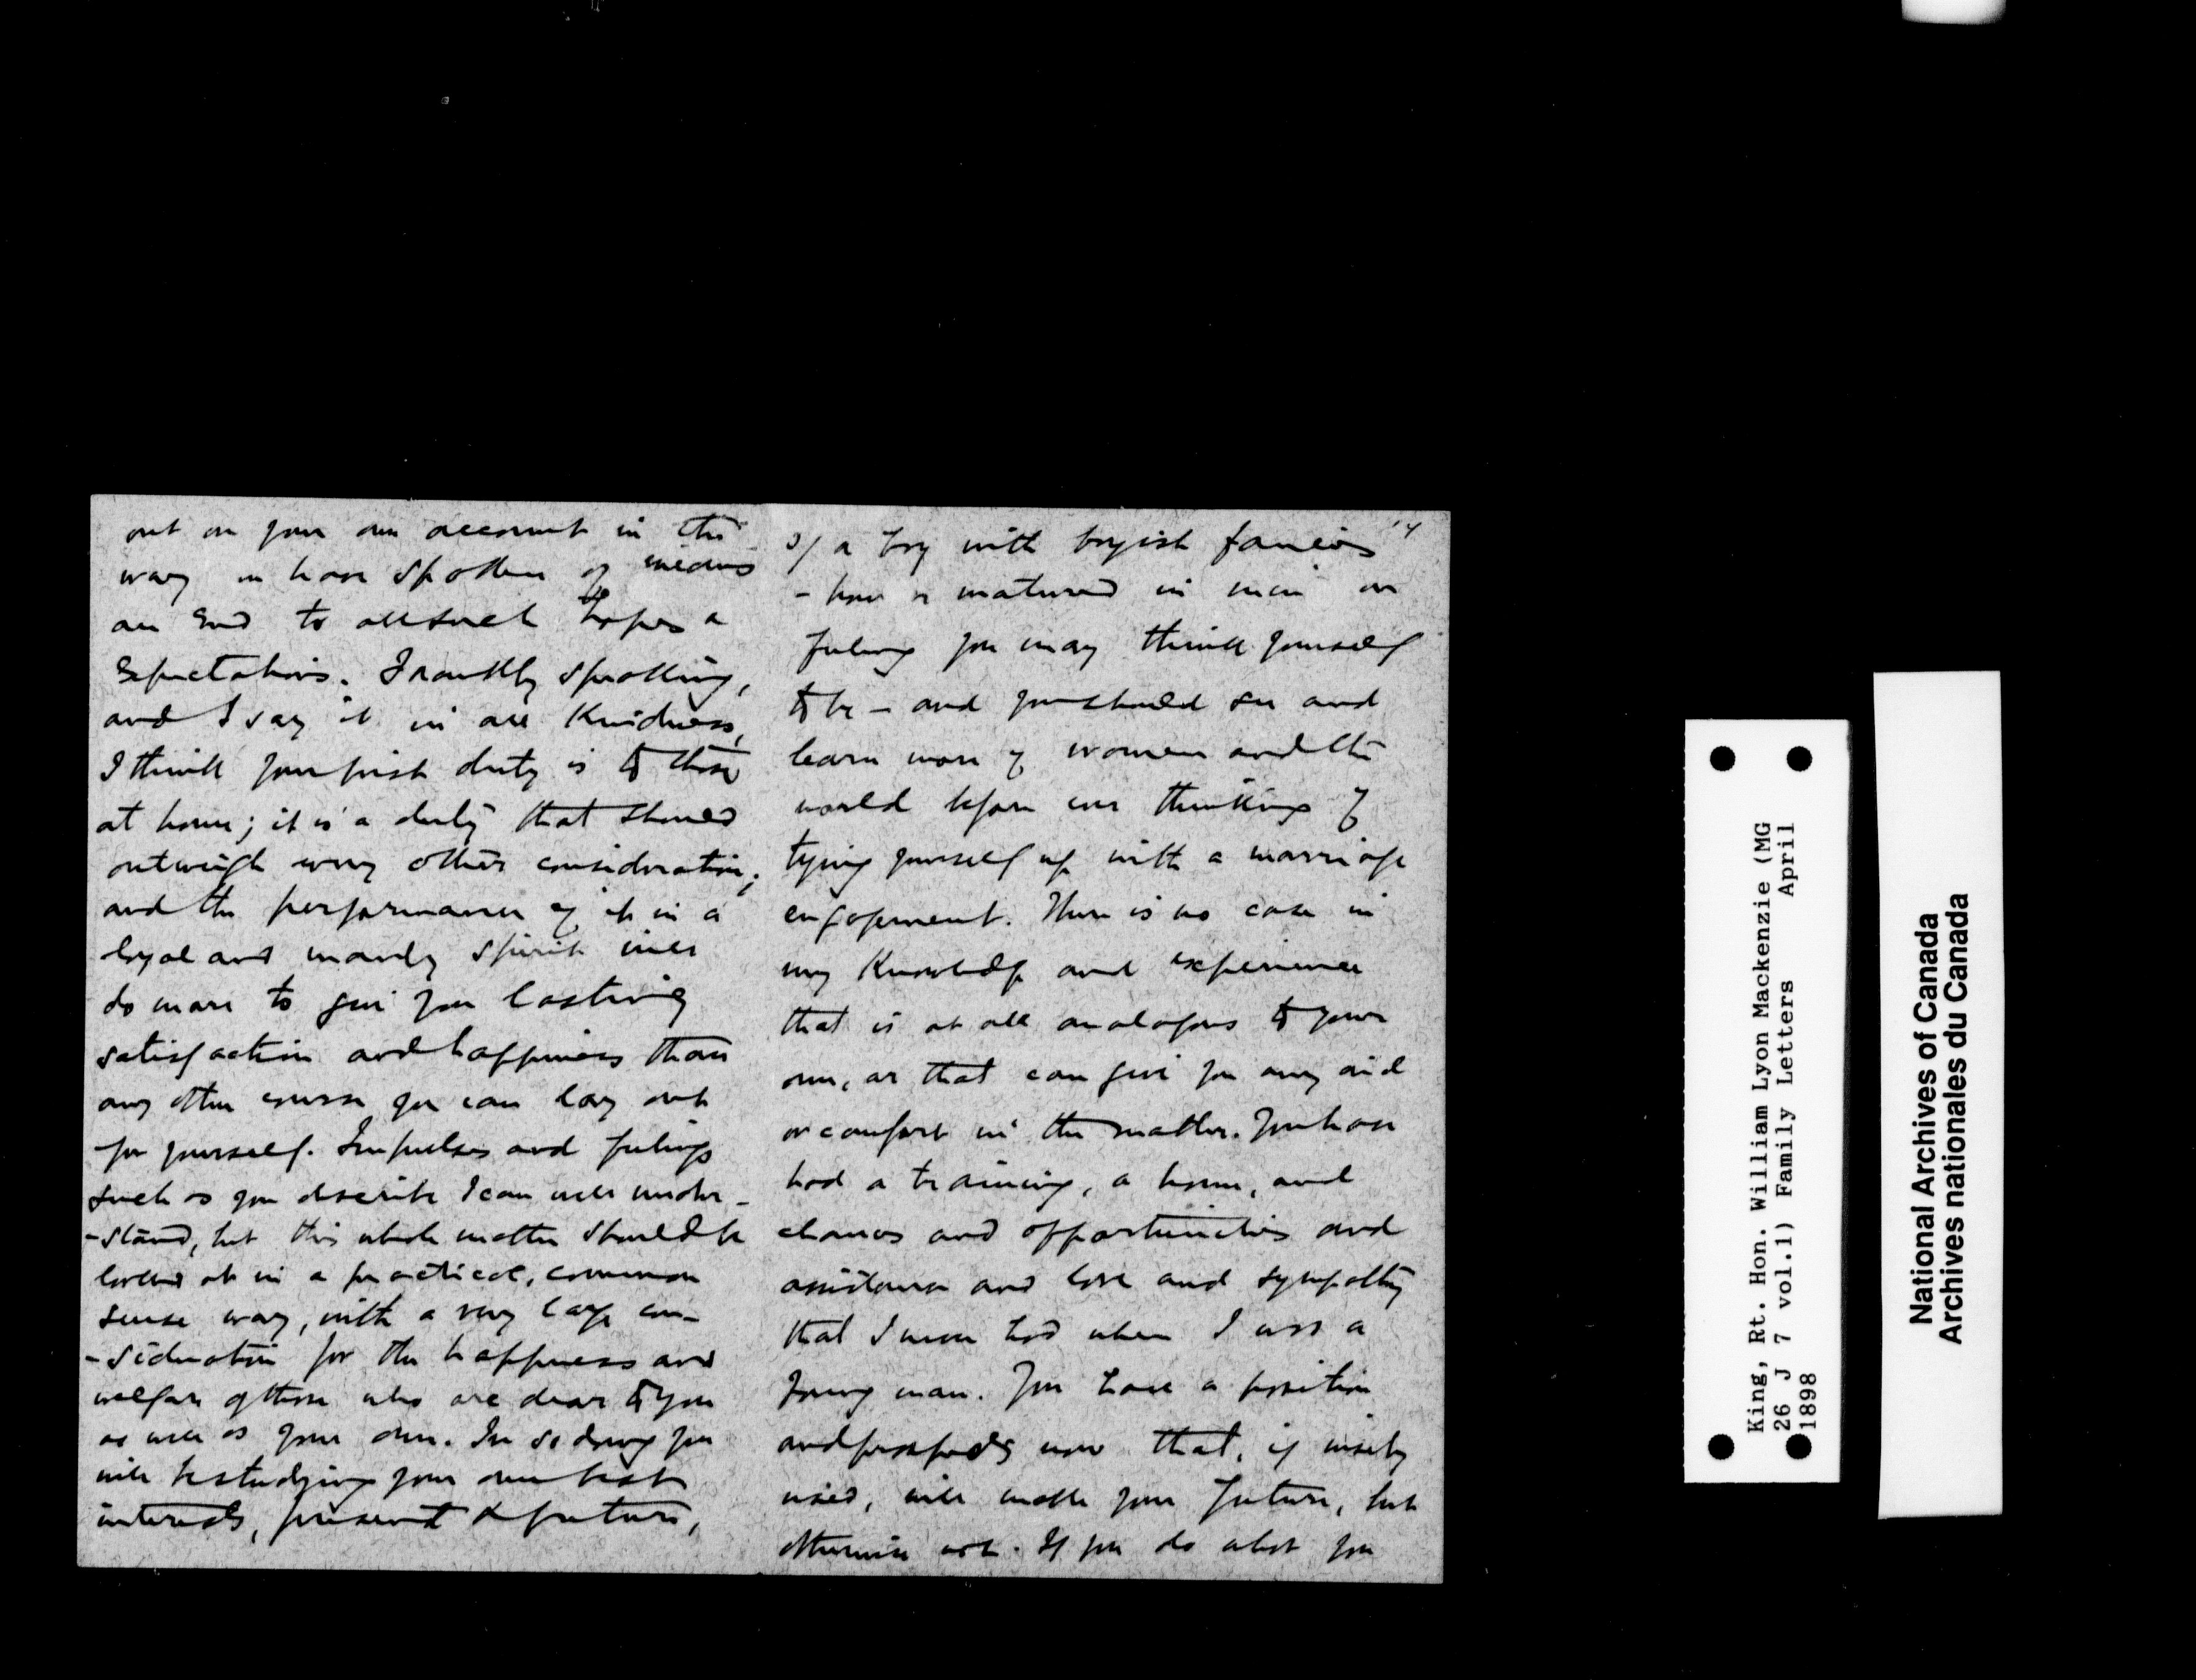 out on your own account in the
way we have spoken of means
an end to all such hopes &
expectations. Frankly speaking,
and I say it in all kindness,
I think your first duty is to those
at home; it is a duty that should
outweigh every other consideration;
and the performance of it in a
loyal and manly spirit will
do more to give you lasting
satisfaction and happiness than
any other course you can lay out
for yourself. Impulses and feelings
such as you describe I can well under-
-stand, but this whole matter should be
looked at in a practical, common
sense way, with a very large con-
-sideration for the happiness and
welfare of those who are dear to you
as well as your own. In so doing you
will be studying your own best
interests, present & future,
14
of a boy with boyish fancies
- how matured in mind or
feeling you may think yourself
to be - and you should see and
learn more of women and the
world before ever thinking of
tying yourself up with a marriage
engagement. There is no case in
my knowledge and experience
that is at all analogous to your
own, or that can give you any aid
or comfort in the matter. You have
had a training, a home, and
chances and opportunities and
assistance and love and sympathy
that I never had when I was a
young man. You have a position
and prospects now that, if wisely
used, will make your future, but
otherwise not. If you do what you
King, Rt. Hon. William Lyon Mackenzie (MG
26 J 7 vol.1) Family Letters April
1898
National Archives of Canada
Archives nationales du Canada